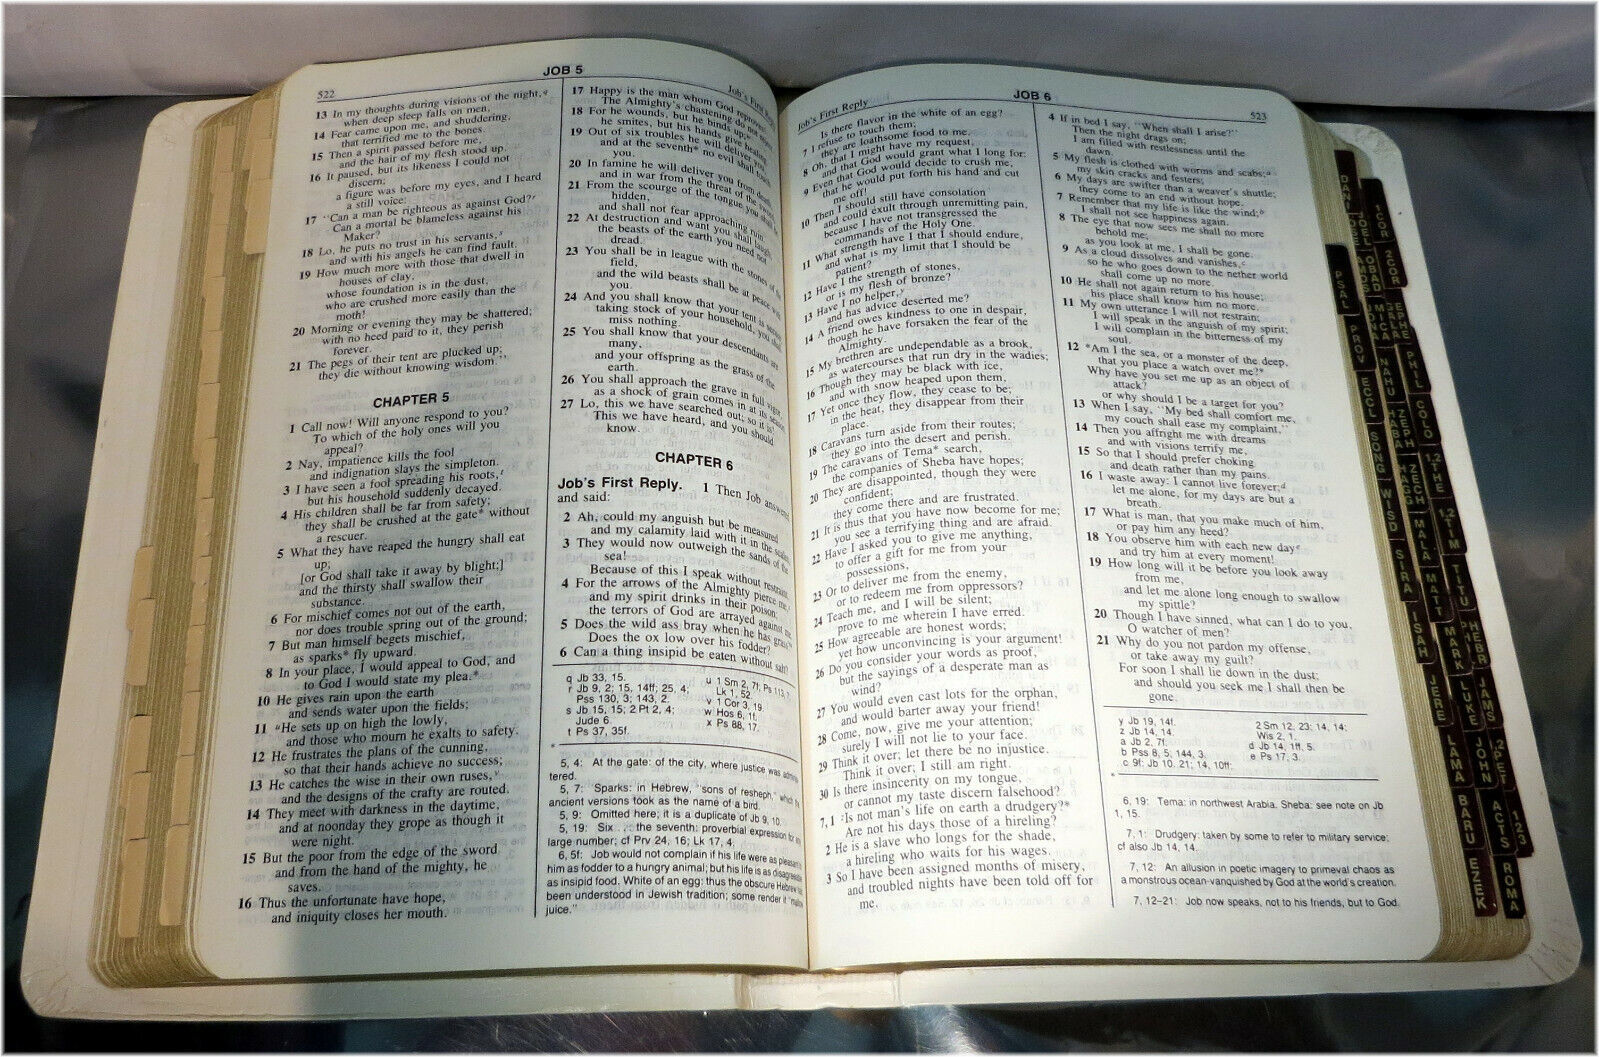 522
JOB 5
Job's First
13 In my thoughts during visions of the night,q
when deep sleep falls on men,
14 Fear came upon me, and shuddering,
that terrified me to the bones.
15 Then a spirit passed before me,
and the hair of my flesh stood up.
16 It paused, but its likeness I could not
discern;
a figure was before my eyes, and I heard
a still voice:
17 "Can a man be righteous as against God?r
Can a mortal be blameless against his
Maker?
18 Lo, he puts no trust in his servants,s
and with his angels he can find fault.
19 How much more with those that dwell in
houses of clay,
whose foundation is in the dust,
who are crushed more easily than the
moth!
20 Morning or evening they may be shattered;
with no heed paid to it, they perish
forever.
21 The pegs of their tent are plucked up;
they die without knowing wisdom."
CHAPTER 5
1 Call now! Will anyone respond to you?
To which of the holy ones will you
appeal?
2 Nay, impatience kills the fool
and indignation slays the simpleton.
3 I have seen a fool spreading his roots,t
but his household suddenly decayed.
4 His children shall be far from safety;
they shall be crushed at the gate* without
a rescuer.
5 What they have reaped the hungry shall eat
up;
[or God shall take it away by blight;]
and the thirsty shall swallow their
substance.
6 For mischief comes not out of the earth,
nor does trouble spring out of the ground;
7 But man himself begets mischief,
as sparks* fly upward.
8 In your place, I would appeal to God, and
to God I would state my plea.*
10 He gives rain upon the earth
and sends water upon the fields;
11 uHe sets up on high the lowly,
and those who mourn he exalts to safety.
12 He frustrates the plans of the cunning,
so that their hands achieve no success;
13 He catches the wise in their own ruses,v
and the designs of the crafty are routed.
14 They meet with darkness in the daytime,
and at noonday they grope as though it
were night.
15 But the poor from the edge of the sword
and from the hand of the mighty, he
saves.
16 Thus the unfortunate have hope,
and iniquity closes her mouth.
17 Happy is the man whom God reproves!
The Almighty's chastening do not
18 For he wounds, but he binds up;
he smites, but his hands give healing.
19 Out of six troubles he will deliver you,
and at the seventh* no evil shall touch
you.
20 In famine he will deliver you from death,
and in war from the threat of the sword;
21 From the scourge of the tongue you shall be
hidden,
and shall not fear approaching ruin.
22 At destruction and want you shall laugh;
the beasts of the earth you need not
dread.
23 You shall be in league with the stones of the
field,
and the wild beasts shall be at peace with
you.
24 And you shall know that your tent is secure;
taking stock of your household, you shall
miss nothing.
25 You shall know that your descendants are
many,
and your offspring as the grass of the
earth.
26 You shall approach the grave in full vigor,
as a shock of grain comes in at its season.
27 Lo, this we have searched out; so it is!
This we have heard, and you should
know.
CHAPTER 6
Job's First Reply. 1 Then Job answered
and said:
2 Ah, could my anguish but be measured
and my calamity laid with it in the scales,
3 They would now outweigh the sands of the
sea!
Because of this I speak without restraint.
4 For the arrows of the Almighty pierce me,
and my spirit drinks in their poison;
the terrors of God are arrayed against me.
5 Does the wild ass bray when he has grass?*
Does the ox low over his fodder?
6 Can a thing insipid be eaten without salt?
q Jb 33, 15.
r Jb 9, 2; 15, 14ff; 25, 4;
Pss 130, 3; 143, 2.
s Jb 15, 15; 2 Pt 2, 4;
Jude 6.
t Ps 37, 35f.
u 1 Sm 2, 7f; Ps 113, 7;
Lk 1, 52.
v 1 Cor 3, 19.
w Hos 6, 1f.
x Ps 88, 17.
*
5, 4: At the gate: of the city, where justice was adminis-
tered.
5, 7: Sparks: in Hebrew, "sons of resheph," which the
ancient versions took as the name of a bird.
5, 9: Omitted here; it is a duplicate of Jb 9, 10.
5, 19: Six . . . the seventh: proverbial expression for any
large number; cf Prv 24, 16; Lk 17, 4.
6, 5f: Job would not complain if his life were as pleasant to
him as fodder to a hungry animal; but his life is as disagreeable
as insipid food. White of an egg: thus the obscure Hebrew has
been understood in Jewish tradition; some render it "mallow
juice."
Job's First Reply
JOB 6
523
Is there flavor in the white of an egg?
7 I refuse to touch them;
they are loathsome food to me.
8 Oh, that I might have my request,
and that God would grant what I long for:
9 Even that God would decide to crush me,
that he would put forth his hand and cut
me off!
10 Then I should still have consolation
and could exult through unremitting pain,
because I have not transgressed the
commands of the Holy One.
11 What strength have I that I should endure,
and what is my limit that I should be
patient?
12 Have I the strength of stones,
or is my flesh of bronze?
13 Have I no helper,y
and has advice deserted me?
14 A friend owes kindness to one in despair,
though he have forsaken the fear of the
Almighty.
15 My brethren are undependable as a brook,
as watercourses that run dry in the wadies;
16 Though they may be black with ice,
and with snow heaped upon them,
17 Yet once they flow, they cease to be;
in the heat, they disappear from their
place.
18 Caravans turn aside from their routes;
they go into the desert and perish.
19 The caravans of Tema* search,
the companies of Sheba have hopes;
20 They are disappointed, though they were
confident;
they come there and are frustrated.
21 It is thus that you have now become for me;
you see a terrifying thing and are afraid.
22 Have I asked you to give me anything,
to offer a gift for me from your
possessions,
23 Or to deliver me from the enemy,
or to redeem me from oppressors?
24 Teach me, and I will be silent;
prove to me wherein I have erred.
25 How agreeable are honest words;
yet how unconvincing is your argument!
26 Do you consider your words as proof,
but the sayings of a desperate man as
wind?
27 You would even cast lots for the orphan,
and would barter away your friend!
28 Come, now, give me your attention;
surely I will not lie to your face.
29 Think it over; let there be no injustice.
Think it over; I still am right.
30 Is there insincerity on my tongue,
or cannot my taste discern falsehood?
7,1 zIs not man's life on earth a drudgery?*
Are not his days those of a hireling?
2 He is a slave who longs for the shade,
a hireling who waits for his wages.
3 So I have been assigned months of misery,
and troubled nights have been told off for
me.
4 If in bed I say, "When shall I arise?"
Then the night drags on;
I am filled with restlessness until the
dawn.
5 My flesh is clothed with worms and scabs;a
my skin cracks and festers;
6 My days are swifter than a weaver's shuttle;
they come to an end without hope.
7 Remember that my life is like the wind;b
I shall not see happiness again.
8 The eye that now sees me shall no more
behold me;
as you look at me, I shall be gone.
9 As a cloud dissolves and vanishes,c
so he who goes down to the nether world
shall come up no more.
10 He shall not again return to his house;
his place shall know him no more.
11 My own utterance I will not restrain;
I will speak in the anguish of my spirit;
I will complain in the bitterness of my
soul.
12 *Am I the sea, or a monster of the deep,
that you place a watch over me?*
Why have you set me up as an object of
attack?
or why should I be a target for you?
13 When I say, "My bed shall comfort me,
my couch shall ease my complaint,"
14 Then you affright me with dreams
and with visions terrify me,
15 So that I should prefer choking
and death rather than my pains.
16 I waste away: I cannot live forever;d
let me alone, for my days are but a
breath.
17 What is man, that you make much of him,
or pay him any heed?
18 You observe him with each new daye
and try him at every moment!
19 How long will it be before you look away
from me,
and let me alone long enough to swallow
my spittle?
20 Though I have sinned, what can I do to you,
O watcher of men?
21 Why do you not pardon my offense,
or take away my guilt?
For soon I shall lie down in the dust;
and should you seek me I shall then be
gone.
y Jb 19, 14f.
z Jb 14, 14.
a Jb 2, 7f.
b Pss 8, 5; 144, 3.
c 9f: Jb 10, 21; 14, 10ff;
2 Sm 12, 23; 14, 14;
Wis 2, 1.
d Jb 14, 1ff, 5.
e Ps 17, 3.
*
6, 19: Tema: in northwest Arabia. Sheba: see note on Jb
1, 15.
7, 1: Drudgery: taken by some to refer to military service;
cf also Jb 14, 14.
7, 12: An allusion in poetic imagery to primeval chaos as
a monstrous ocean-vanquished by God at the world's creation.
7, 12-21: Job now speaks, not to his friends, but to God.
PSAL
PROV
ECCL
SONG
WISD
SIRA
ISAH
JERE
LAMA
BARU
EZEK
DANI
JOEL
AMOS
OBAD
MICA
NAHU
HABA
ZEPH
HAGG
ZECH
MALA
MATT
MARK
LUKE
JOHN
ACTS
ROMA
1COR
2COR
EPHE
PHIL
COLO
1,2 THE
1,2 TIM
TITU
HEBR
JAMS
2PET
123